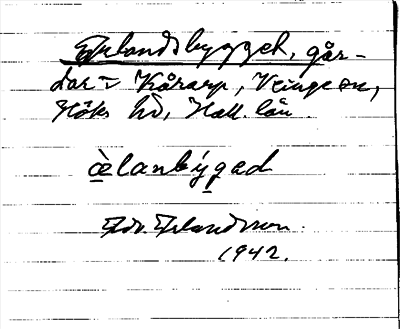 Erlandsbygget, går-
dar i Kårarp, Veinge sn,
Höks hd, Hall. län.
èlanbýgad
Edv. Erlandsson.
1942.